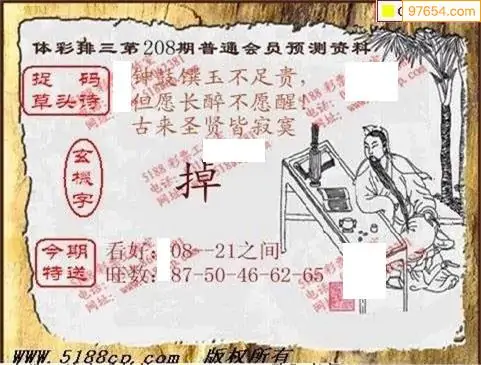 97654.com
体彩排三第208期普通会员预测资料
捉 码
草头诗
钟鼓馔玉不足贵,
但愿长醉不愿醒!
古来圣贤皆寂寞
玄機字
掉
今期
特送
看好:08--21之间
旺数:87-50-46-62-65
www.5188cp.com 版权所有